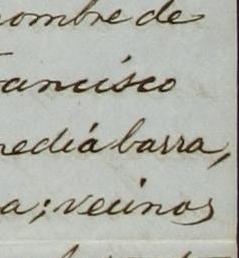 ombre de
rancisco
mediá barra,
a; vecinos